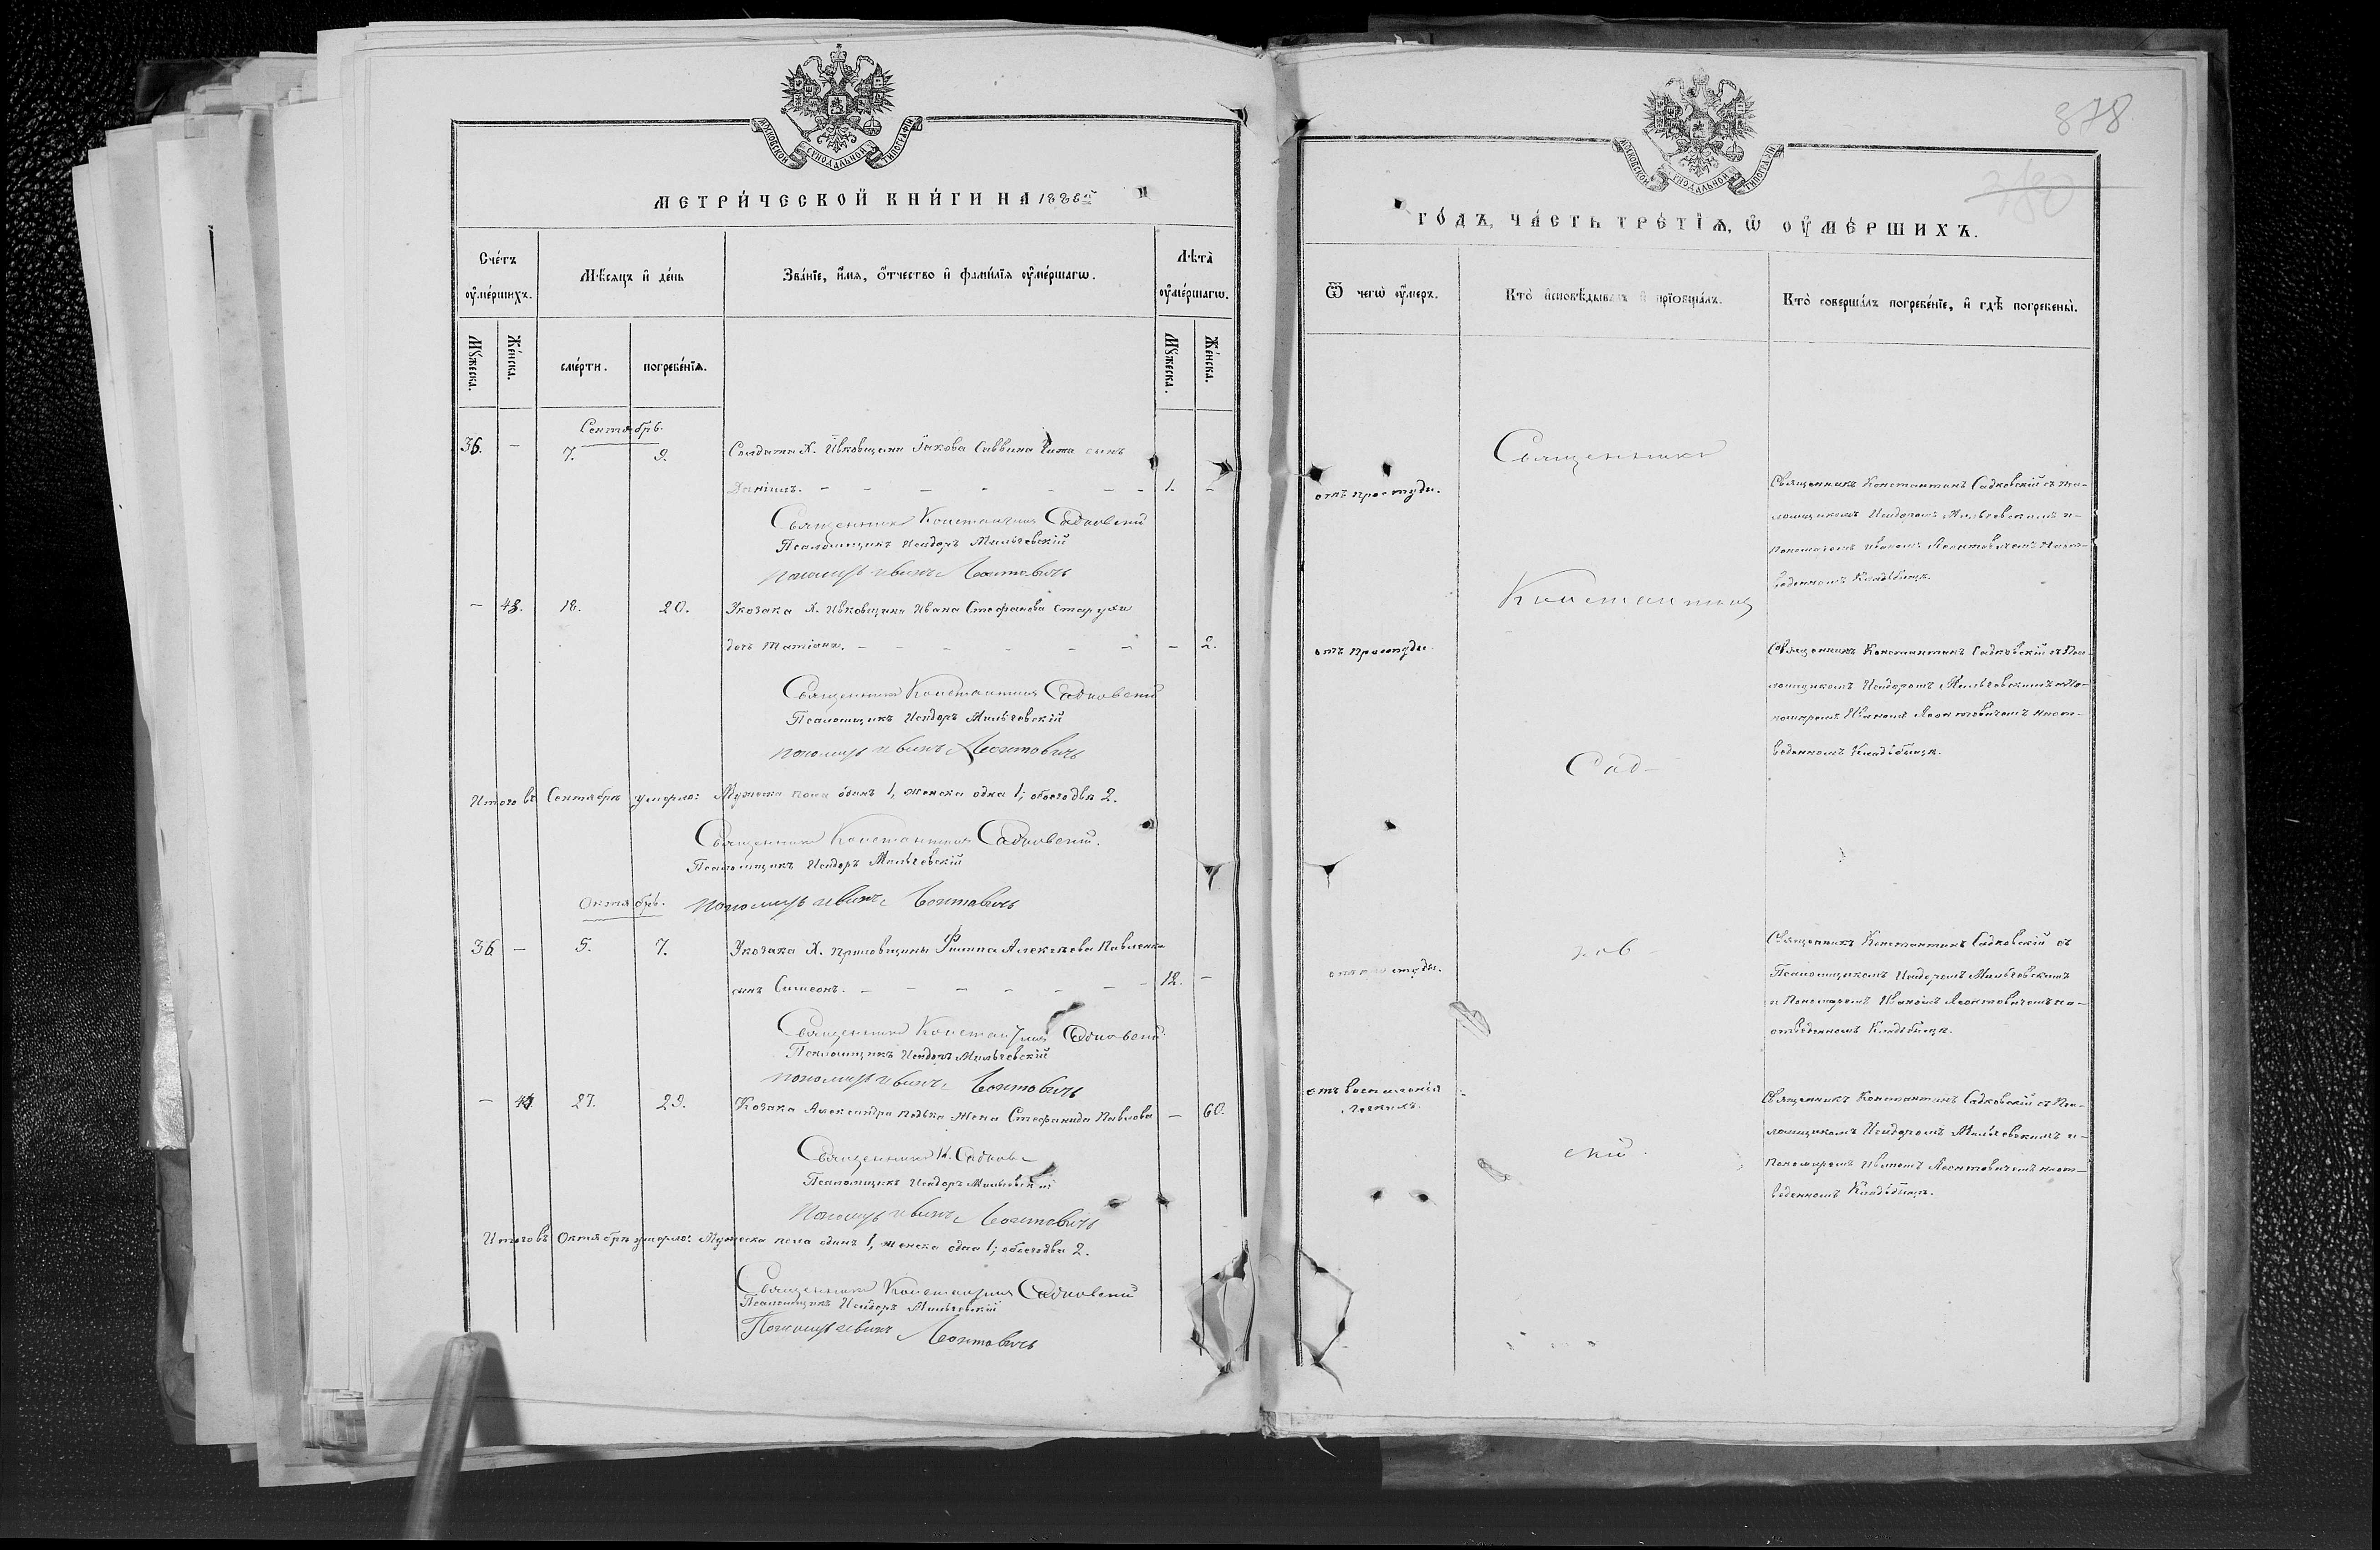 МОСКОВСКОЙ СѴНОДАЛЬНОЙ ТИПОГРАФІИ
МЕТРИ́ЧЕСКОЙ КНИ́ГИ НА 1886й
Сче́тъ ᲂу҆ме́ршихъ.
Мѣ́сяцъ и҆ де́нь
Зва́нїе, и҆́мя, ѻ҆́тчество и҆ фамі́лїя ᲂу҆ме́ршагѡ.
Лѣ́та ᲂу҆ме́ршагѡ.
Мꙋ́жеска.
Же́нска.
сме́рти.
погребе́нїѧ.
Мꙋ́жеска.
Же́нска.
Сентябрь.
36. – 7. 9. Солдата Х. Ивковщини Іакова Саввина сынъ
Даніилъ. – – – – – – – 1. –
Священникъ Константинъ Садковскій
Псаломщикъ Исидоръ Мильгевскій
Пономарь Иванъ Леонтовичъ
– 43. 18. 20. Укозака Х. Ивковщини Ивана Стефанова
дочь Татіана. – – – – – – – 2.
Священникъ Константинъ Садковскій
Псаломщикъ Исидоръ Мильгевскій
Пономарь Иванъ Леонтовичъ
Итого въ Сентябрѣ умерло: Мужеска пола одинъ 1, женска одна 1; обоего два 2.
Священникъ Константинъ Садковскій.
Псаломщикъ Исидоръ Мильгевскій
Октябрь.
Пономарь Иванъ Леонтовичъ
36 – 5. 7. Укозака Х. Филипа Алексѣева Павленка
сынъ Симеонъ. – – – – – – – 12. –
Священникъ Константинъ Садковскій
Псаломщикъ Исидоръ Мильгевскій
Пономарь Иванъ Леонтовичъ
– 44. 27. 29. Козака Александра жена Стефанида Павлова – 60.
Священникъ К. Садковс
Псаломщикъ Исидоръ Мильгевскій
Пономарь Иванъ Леонтовичъ
Итого въ Октябрѣ умерло: Мужеска пола одинъ 1, женска одна 1; обоего два 2.
Священникъ Константинъ Садковскій
Псаломщикъ Исидоръ Мильгевскій
Пономарь Иванъ Леонтовичъ
878
МОСКОВСКОЙ СѴНОДАЛЬНОЙ ТИПОГРАФІИ
ГО́ДЪ, ЧА́СТЬ ТРЕ́ТЇѦ, Ѡ҆ ОУ҆МЕ́РШИХЪ.
Ѿ чегѡ̀ ᲂу҆́меръ.
Кто̀ и҆сповѣ́дывалъ и҆ прїѡбща́лъ.
Кто̀ соверша́лъ погребе́нїе, и҆ гдѣ̀ погребены̀.
Священникъ
Константинъ
Сад–
ков–
скій.
отъ простуды.
Священникъ Константинъ Садковскій съ Пса–
ломщикомъ Исидоромъ Мильгевскимъ и–
Пономаремъ Иваномъ Леонтовичемъ на от–
веденномъ Кладбищѣ.
отъ простуды.
Священникъ Константинъ Садковскій съ Пса–
ломщикомъ Исидоромъ Мильгевскимъ и По–
номаремъ Иваномъ Леонтовичемъ на от–
веденномъ Кладбищѣ.
отъ простуды.
Священникъ Константинъ Садковскій съ
Псаломщикомъ Исидоромъ Мильгевскимъ
и Пономаремъ Иваномъ Леонтовичемъ на–
отведенномъ Кладбищѣ.
отъ воспаленія
легкихъ.
Священникъ Константинъ Садковскій съ Пса–
ломщикомъ Исидоромъ Мильгевскимъ и–
Пономаремъ Иваномъ Леонтовичемъ на от–
веденномъ Кладбищѣ.